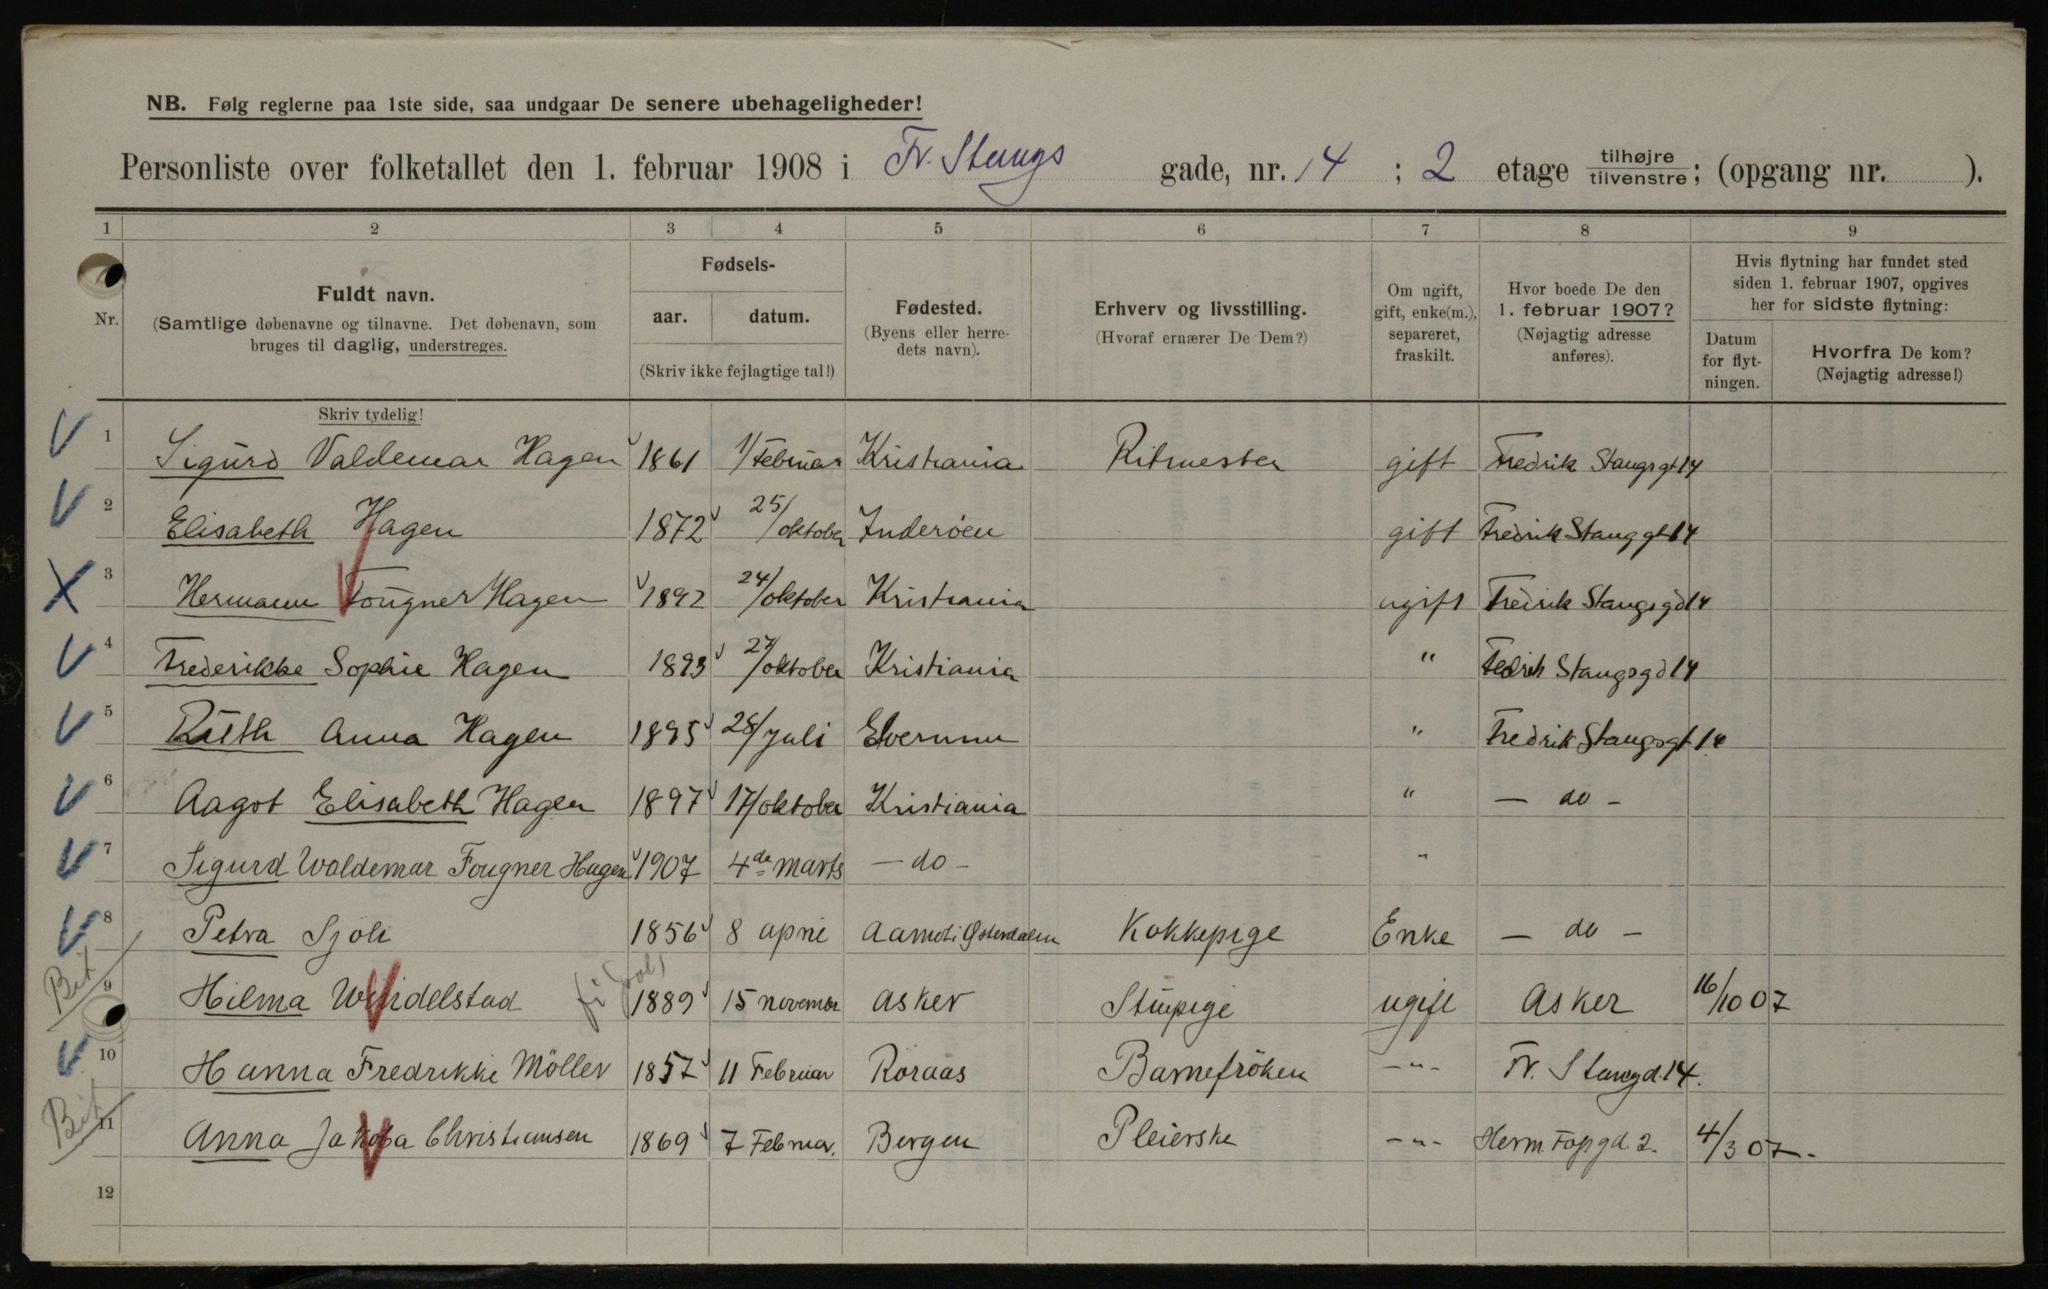 NB. Følg reglerne paa 1ste side, saa undgaar De senere ubehageligheder!
Personliste over folketallet den 1. februar 1908 i Fr. Stangs gade, nr. 14 ; 2 etage tilhøjre tilvenstre; (opgang nr. ).
1 2 3 4 5 6 7 8 9
Nr.
Fuldt navn.
(Samtlige døbenavne og tilnavne. Det døbenavn, som
bruges til daglig, understreges.
Skriv tydelig!
Fødsels-
aar. datum.
(Skriv ikke fejlagtige tal!)
Fødested.
(Byens eller herre-
dets navn).
Erhverv og livsstilling.
(Hvoraf ernærer De Dem?)
Om ugift,
gift, enke(m.),
separeret,
fraskilt.
Hvor boede De den
1. februar 1907?
(Nøjagtig adresse
anføres).
Hvis flytning har fundet sted
siden 1. februar 1907, opgives
her for sidste flytning:
Datum
for flyt-
ningen.
Hvorfra De kom?
(Nøjagtig adresse!)
1 Sigurd Valdemar Hagen 1861 1/ Februar Kristiania Ritmester gift Fredrik Stangsgt 14
2 Elisabeth Hagen 1872 25/ oktober Inderöen gift Fredrik Stanggt 14
3 Hermann Fougner Hagen 1892 24/ oktober Kristiania ugift Fredrik Stangsgd 14
4 Frederikke Sophie Hagen 1893 27/ oktober Kristiania " Fedrik Stangsgd 14
5 Ruth Anna Hagen 1895 28/ juli Elverum " Fredrik Stangsgt 14
6 Aagot Elisabeth Hagen 1897 17/ oktober Kristiania " — do -
7 Sigurd Waldemar Fougner Hagen 1907 4de marts — do - "
8 Petra Sjöli 1856 8 april Aamot i Østerdalen Kokkepige Enke — do -
Bit 9 Hilma Windelstad 1889 15 november Asker Stuepige ugift Asker 16/10 07
10 Hanna Fredrikke Möller 1857 11 Februar Röraas Barnefröken -"- Fr. Stangd. 14.
Bit 11 Anna Jakoba Christiansen 1869 7 Februar. Bergen Pleierske -"- Herm. Fosgd 2. 4/3 07-
12